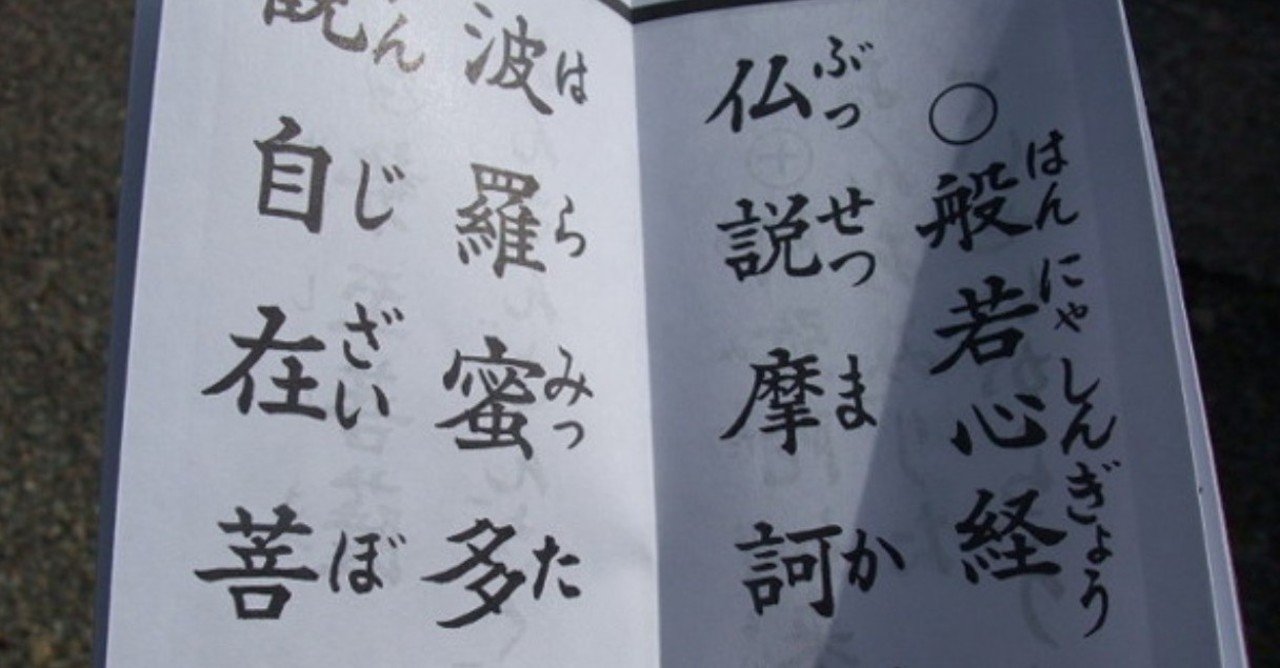 ○般若心経
はんにゃしんぎょう
仏説摩訶
ぶっせつまか
波羅蜜多
はらみった
自在菩
んじざいぼ